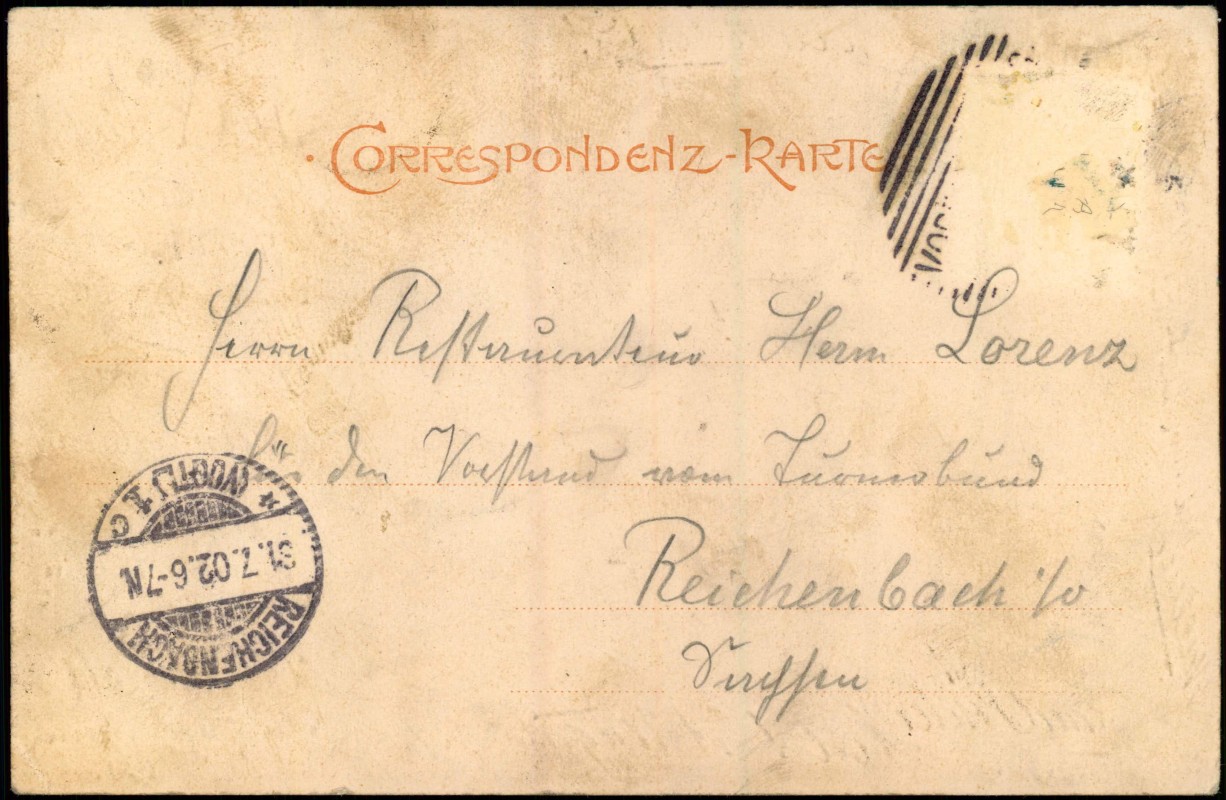 · CORRESPONDENZ-KARTE
Herrn Restaurateur Herm Lorenz
für den Vorstand vom Turnerbund
Reichenbach i/v
Sachsen
REICHENBACH
31.7.02.6-7N.
* (VOGTL) 1. c